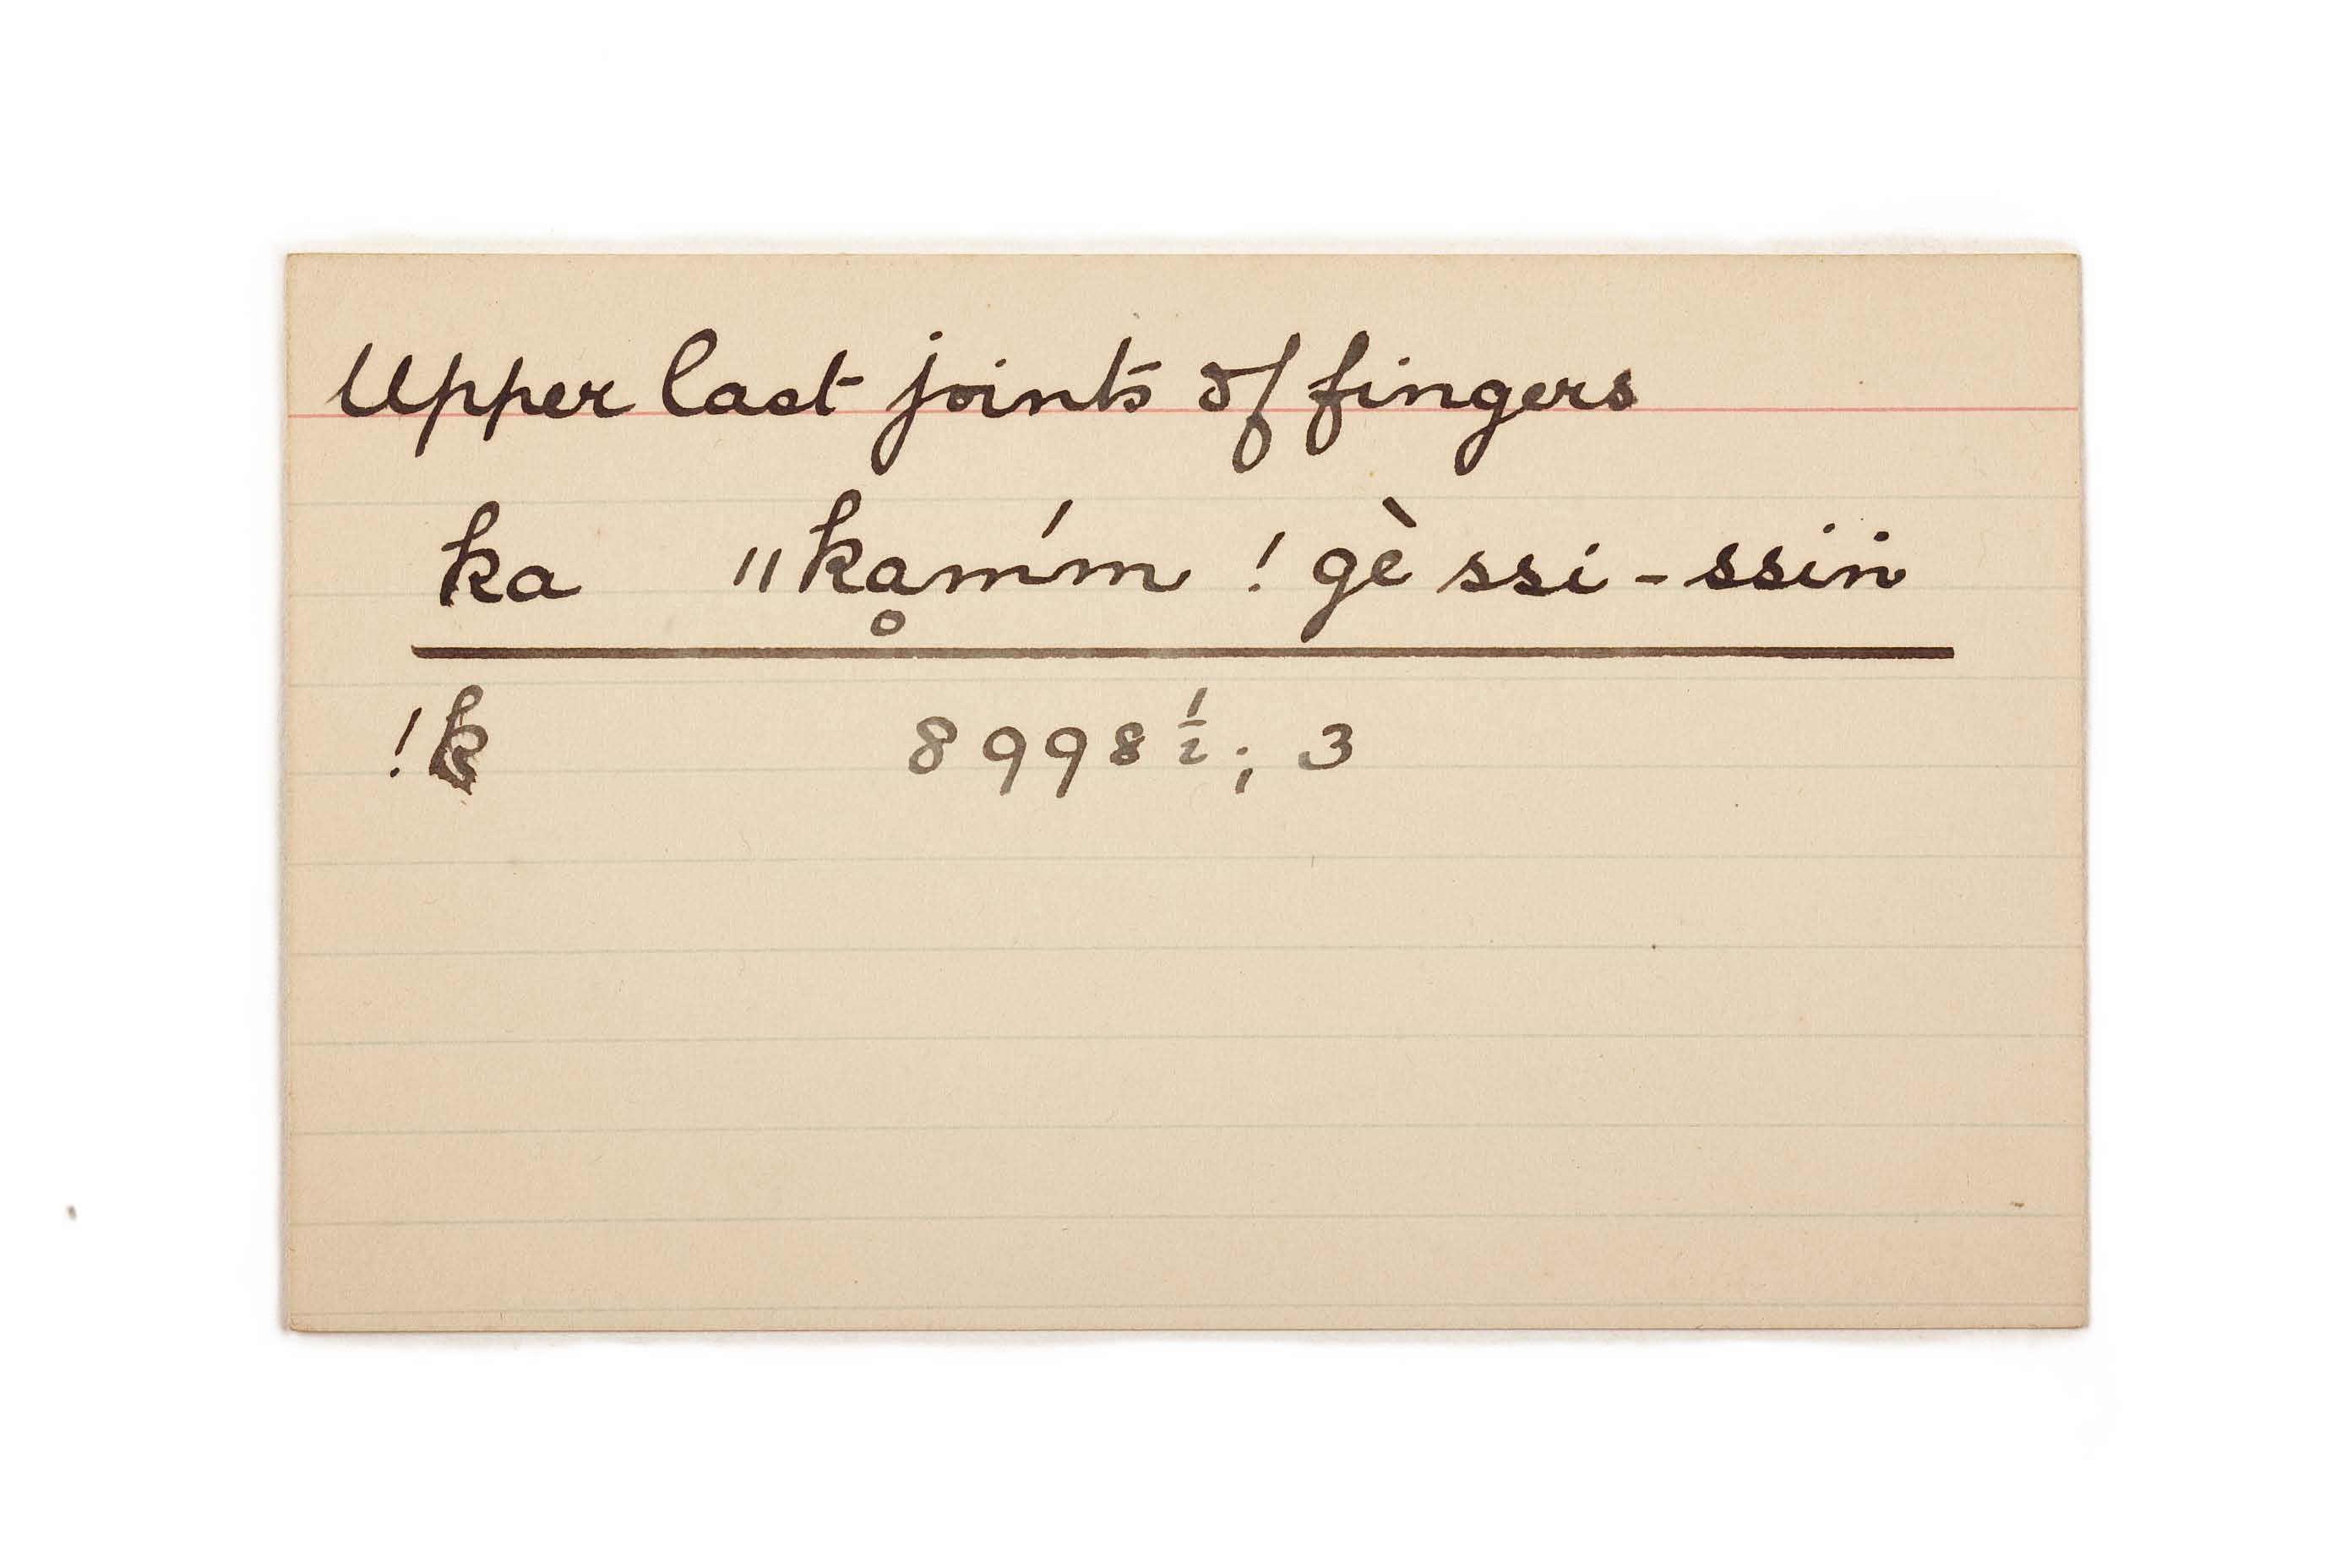 Upper last joints of fingers
ka ǁkḁm´m !gè ssi-ssiṅ
!k 8998½; 3